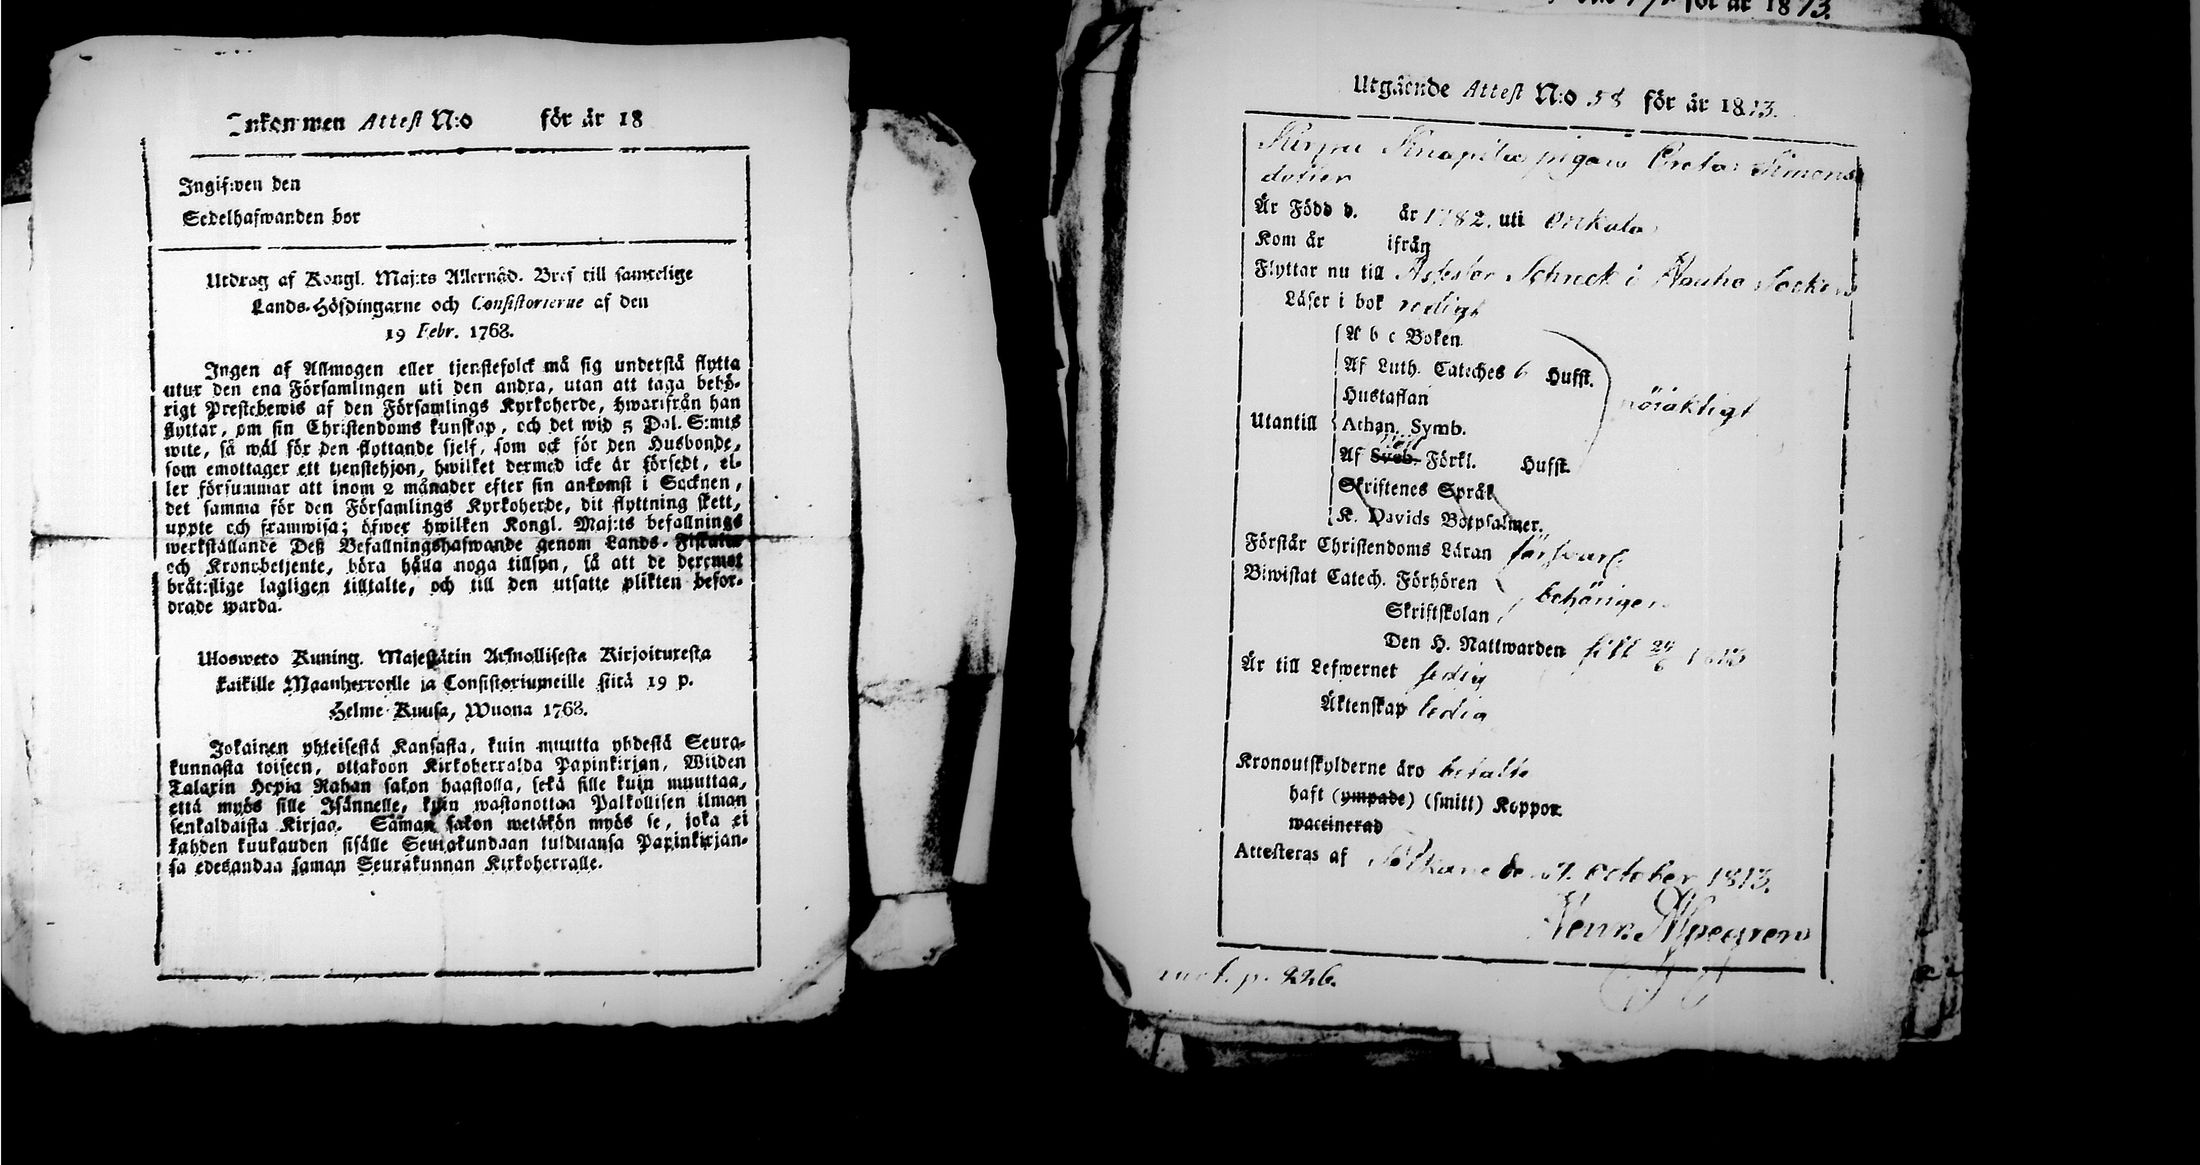 Inkommen Attest N:o för år 18
Ingifwen den
Sedelhafwanden bor
Utdrag af Kongl. Maj:ts Allernåd. Bref till samtelige
Lands-Höfdingarne och Consistorierne af den
19 Febr. 1768.
Ingen af Allmogen eller tjenstefolck må sig understå flytta
utur den ena Församlingen uti den andra, utan att taga behö-
rigt Prestebewis af den Församlings Kyrkoherde, hwarifrån han
flyttar, om sin Christendoms kunskap, och det wid 5 Dal. S:mts
wite, så wäl för den flyttande sjelf, som ock för den Husbonde,
som emottager ett tjenstehjon, hwilket dermed icke är försedt, el-
ler försummar att inom 2 månader efter sin ankomst i Socknen,
det samma för den Församlings Kyrkoherde, dit flyttning skett,
uppte och framwisa; öfwer hwilken Kongl. Maj:ts befallnings
werkställande Deß Befallningshafwande genom Lands-Fiskaler
och Kronobetjente, böra hålla noga tillsyn, så att de deremot
bråtslige lagligen tilltalte, och till den utsatte plikten befor-
drade warda.
Ulosweto Kuning. Majestätin Armollisesta Kirjoituxesta
kaikille Maanherroille ja Consistoriumeille siitä 19 p.
Helme-Kuusa, Wuona 1768.
Jokainen yhteisestä Kansasta, kuin muutta yhdestä Seura-
kunnasta toiseen, ottakoon Kirkoherralda Papinkirjan, Wiiden
Talarin Hopia Rahan sakon haastolla, sekä sille kuin muuttaa,
että myös sille Isännelle, kuin wastanottaa Palkollisen ilman
senkaldaista Kirjaa. Saman sakon wetäkön myös se, joka ei
kahden kuukauden sisälle Seurakundaan tulduansa Papinkirjan-
sa edesandaa saman Seurakunnan Kirkoherralle.
för år 1813.
Utgående Attest N:o 58 för år 1813.
pigan Greta Simons
dotter
Är Född d. år 1782. uti
Kom år ifrån
Flyttar nu till Schreck i Hauho Socken
Läser i bok redigt
A b c Boken
Af Luth. Cateches 6 Hufst.
Hustaflan
Utantill Athan. Symb.
Af Sveb. Förkl. Hufst.
Skriftenes Språk
K. Davids Botpsalmer.
Förstår Christendoms Läran försvarl.
Biwistat Catech. Förhören
Skriftskolan behörigen
Den H. Nattwarden sist 24/6 1813
Är till Lefwernet sedig
Äktenskap ledig
Kronoutskylderne äro betalte
haft (ympade) (smitt) Koppor
waccinerad
Attesteras af Pälkäne d. October 1813.
Henr. Alpegren
p. 226.